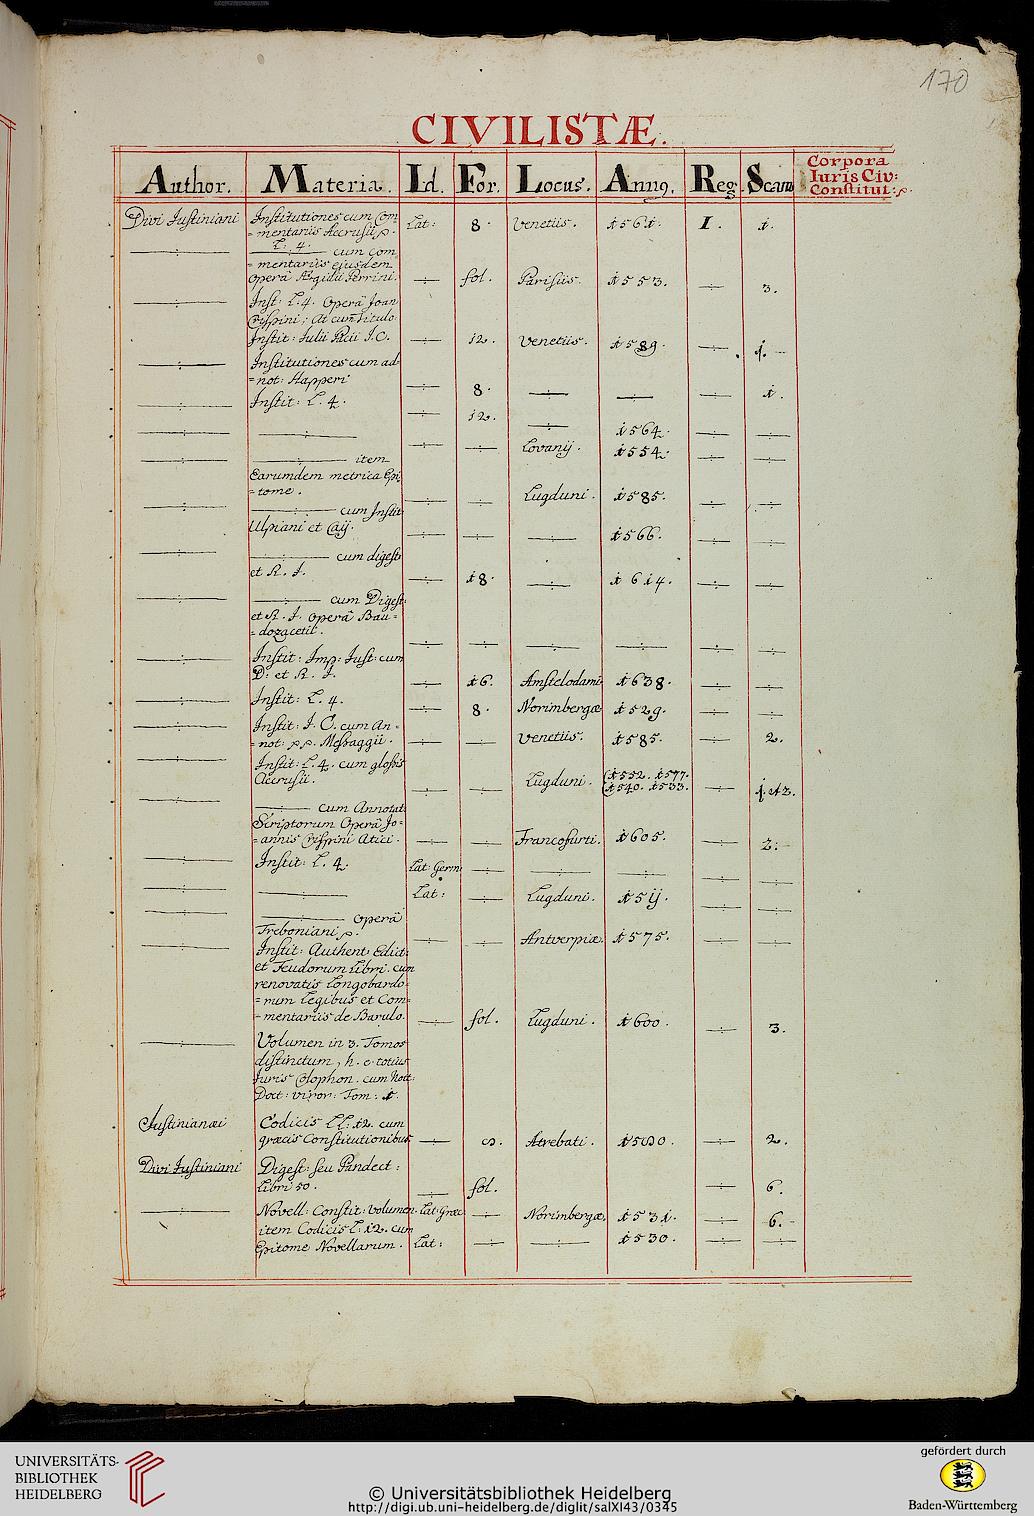 170
CIVILISTÆ.
Author. Materia. Id. For. Locus. Annq. Reg. Scam
Corpora
Iuris Civ:
Constitut:
Divi Justiniani Institutiones cum Com
=mentariis Accrusii
L: 4. Lat: 8. Venetiis. 1561. I. 1.
cum com
=mentariis ejusdem
operâ Ægidii Perrini. fol. Parisiis. 1553. 3.
Inst: L. 4. Operâ Joan
Crispini; At cum titulo
Instit: Julii Pacii I.C. 12. Venetiis. 1589. 1.
Institutiones cum ad
=not: Happeri 8. 1.
Instit: L. 4. 12.
1564.
item Lovanij. 1554.
Earumdem metrica Epi
=tome. Lugduni. 1585.
cum Instit
Ulpiani et Caij. 1566.
cum digest:
et R. J. 18. 1614.
cum Digest:
et R. J. operâ Bau=
=dozacetii.
Instit: Imp: Just: cum
D: et R. J. 16. Amstelodami 1638.
Instit: L. 4. 8. Norimbergæ 1529.
Instit: J. C. cum An=
=not: Messaggii. Venetiis. 1585. 2.
Instit: L. 4. cum glossis
Accrusii. Lugduni. 1552. 1577.
1540. 1533. 1. et 2.
cum Annotat:
Scriptorum Operâ Jo=
=annis Crispini Atici. Francofurti. 1605. 2.
Instit: L. 4. Lat: Germ:
Lat: Lugduni. 15ij.
operâ
Treboniani Antverpiæ. 1575.
Instit: Authent: Edict:
et Feudorum Libri. cum
renovatis Longobardo=
=rum Legibus et Com=
=mentariis de Barulo. fol. Lugduni. 1600. 3.
Volumen in 3. Tomos
distinctum, h. e. totius
Juris Colophon. cum Nott:
Doct: viror: Tom: 1.
Justinianæi Codicis LL: 12. cum
græcis Constitutionibus Atrebati. 2.
Divi Justiniani Digest: seu Pandect:
Libri 50. fol. 6.
Novell: Constit: volumen. Lat: Græc. Norimbergæ. 1531. 6.
item Codicis L: 12. cum
Epitome Novellarum. Lat: 1530.
UNIVERSITÄTS-
BIBLIOTHEK
HEIDELBERG
© Universitätsbibliothek Heidelberg
http://digi.ub.uni-heidelberg.de/diglit/salXI43/0345
gefördert durch
Baden-Württemberg